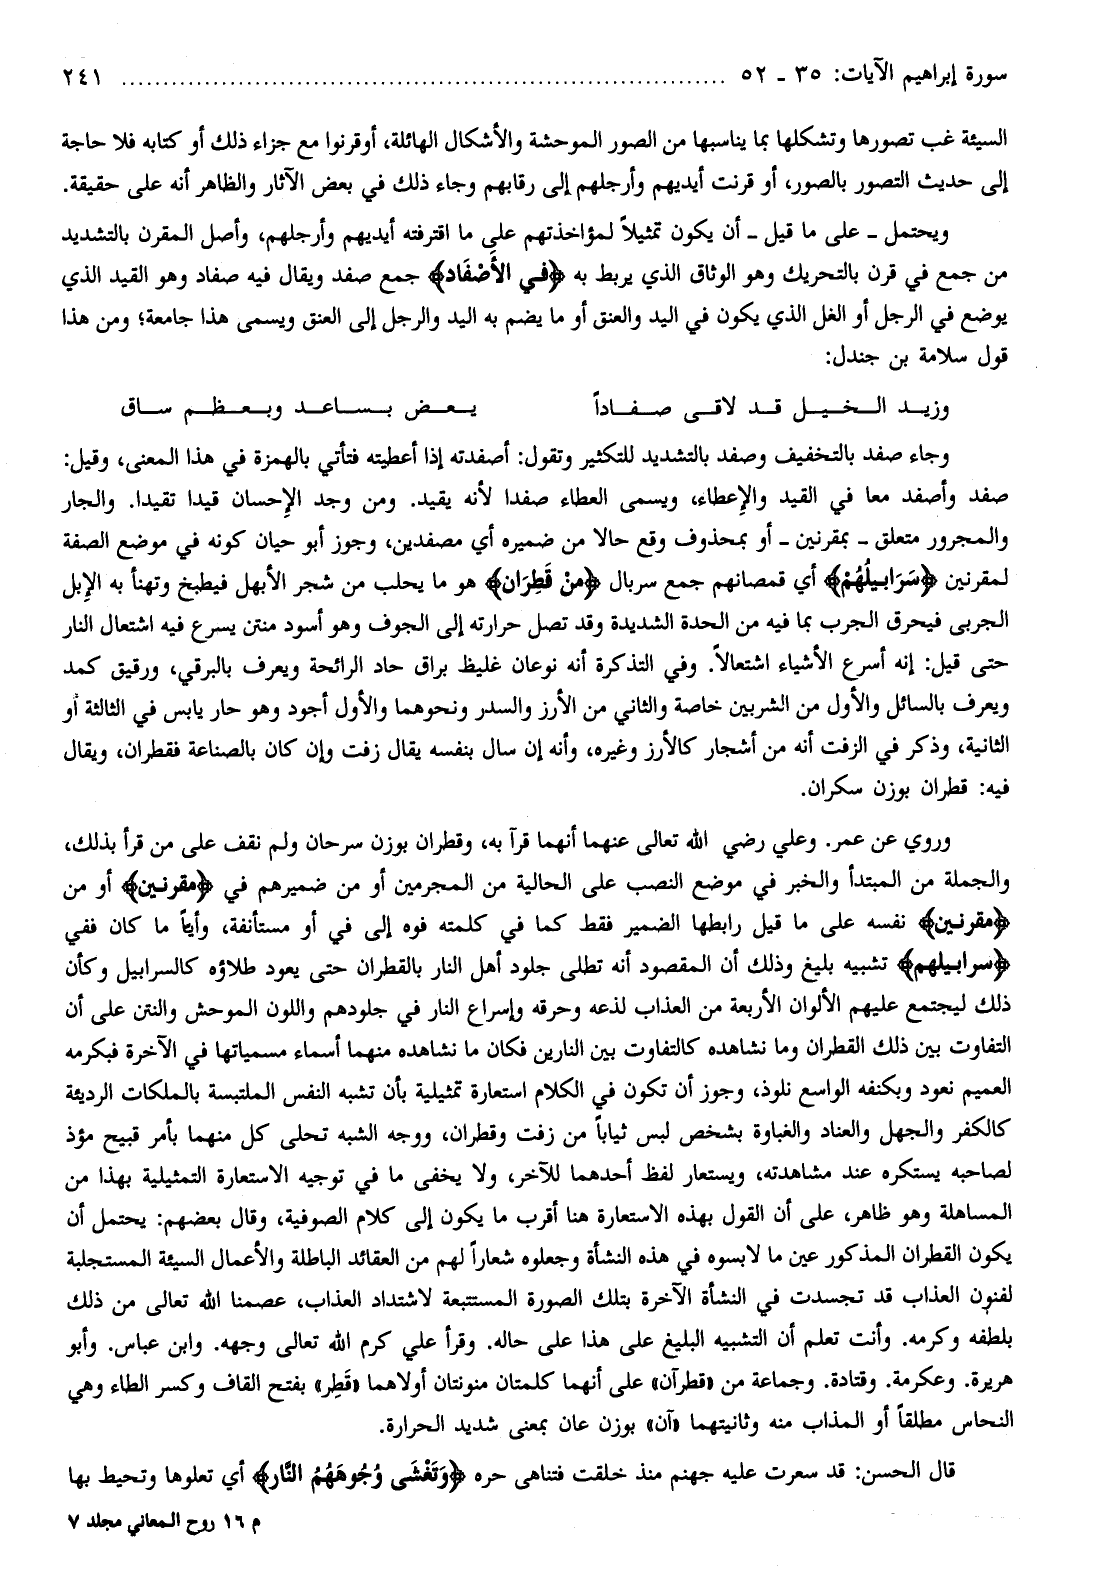 سورة إبراهيم الآيات: ٣٥ ـ ٥٢ ........................................................................... ٢٤١
السيئة غب تصورها وتشكلها بما يناسبها من الصور الموحشة والأشكال الهائلة، أوقرنوا مع جزاء ذلك أو كتابه فلا حاجة
إلى حديث التصور بالصور، أو قرنت أيديهم وأرجلهم إلى رقابهم وجاء ذلك في بعض الآثار والظاهر أنه على حقيقة.
ويحتمل ـ على ما قيل ـ أن يكون تمثيلاً لمؤاخذتهم على ما اقترفته أيديهم وأرجلهم، وأصل المقرن بالتشديد
من جمع في قرن بالتحريك وهو الوثاق الذي يربط به ﴿في الأَصْفَاد﴾ جمع صفد ويقال فيه صفاد وهو القيد الذي
يوضع في الرجل أو الغل الذي يكون في اليد والعنق أو ما يضم به اليد والرجل إلى العنق ويسمى هذا جامعة؛ ومن هذا
قول سلامة بن جندل:
وزيـد الـخـيـل قـد لاقـى صـفـاداً يـعـض بـسـاعـد وبـعـظـم سـاق
وجاء صفد بالتخفيف وصفد بالتشديد للتكثير وتقول: أصفدته إذا أعطيته فتأتي بالهمزة في هذا المعنى، وقيل:
صفد وأصفد معا في القيد والإعطاء، ويسمى العطاء صفدا لأنه يقيد. ومن وجد الإحسان قيدا تقيدا. والجار
والمجرور متعلق ـ بمقرنين ـ أو بمحذوف وقع حالا من ضميره أي مصفدين، وجوز أبو حيان كونه في موضع الصفة
لمقرنين ﴿سَرَابيلُهُمْ﴾ أي قمصانهم جمع سربال ﴿مِنْ قَطِرَان﴾ هو ما يحلب من شجر الأبهل فيطبخ وتهنأ به الإبل
الجربى فيحرق الجرب بما فيه من الحدة الشديدة وقد تصل حرارته إلى الجوف وهو أسود منتن يسرع فيه اشتعال النار
حتى قيل: إنه أسرع الأشياء اشتعالاً. وفي التذكرة أنه نوعان غليظ براق حاد الرائحة ويعرف بالبرقي، ورقيق كمد
ويعرف بالسائل والأول من الشربين خاصة والثاني من الأرز والسدر ونحوهما والأول أجود وهو حار يابس في الثالثة أو
الثانية، وذكر في الزفت أنه من أشجار كالأرز وغيره، وأنه إن سال بنفسه يقال زفت وإن كان بالصناعة فقطران، ويقال
فيه: قطران بوزن سكران.
وروي عن عمر. وعلي رضي الله تعالى عنهما أنهما قرآ به، وقطران بوزن سرحان ولم نقف على من قرأ بذلك،
والجملة من المبتدأ والخبر في موضع النصب على الحالية من المجرمين أو من ضميرهم في ﴿مقرنين﴾ أو من
﴿مقرنين﴾ نفسه على ما قيل رابطها الضمير فقط كما في كلمته فوه إلى في أو مستأنفة، وأياً ما كان ففي
﴿سرابيلهم﴾ تشبيه بليغ وذلك أن المقصود أنه تطلى جلود أهل النار بالقطران حتى يعود طلاؤه كالسرابيل وكأن
ذلك ليجتمع عليهم الألوان الأربعة من العذاب لذعه وحرقه وإسراع النار في جلودهم واللون الموحش والنتن على أن
التفاوت بين ذلك القطران وما نشاهده كالتفاوت بين النارين فكان ما نشاهده منهما أسماء مسمياتها في الآخرة فبكرمه
العميم نعود وبكنفه الواسع نلوذ، وجوز أن تكون في الكلام استعارة تمثيلية بأن تشبه النفس الملتبسة بالملكات الرديئة
كالكفر والجهل والعناد والغباوة بشخص لبس ثياباً من زفت وقطران، ووجه الشبه تحلى كل منهما بأمر قبيح مؤذ
لصاحبه يستكره عند مشاهدته، ويستعار لفظ أحدهما للآخر، ولا يخفى ما في توجيه الاستعارة التمثيلية بهذا من
المساهلة وهو ظاهر، على أن القول بهذه الاستعارة هنا أقرب ما يكون إلى كلام الصوفية، وقال بعضهم: يحتمل أن
يكون القطران المذكور عين ما لابسوه في هذه النشأة وجعلوه شعاراً لهم من العقائد الباطلة والأعمال السيئة المستجلبة
لفنون العذاب قد تجسدت في النشأة الآخرة بتلك الصورة المستتبعة لاشتداد العذاب، عصمنا الله تعالى من ذلك
بلطفه وكرمه. وأنت تعلم أن التشبيه البليغ على هذا على حاله. وقرأ علي كرم الله تعالى وجهه. وابن عباس. وأبو
هريرة. وعكرمة. وقتادة. وجماعة من «قطرآن» على أنهما كلمتان منونتان أولاهما «قَطِر» بفتح القاف وكسر الطاء وهي
النحاس مطلقاً أو المذاب منه وثانيتهما «آن» بوزن عان بمعنى شديد الحرارة.
قال الحسن: قد سعرت عليه جهنم منذ خلقت فتناهى حره ﴿وَتَغْشَى وُجُوهَهُمُ النَّار﴾ أي تعلوها وتحيط بها
م ١٦ روح المعاني مجلد ٧